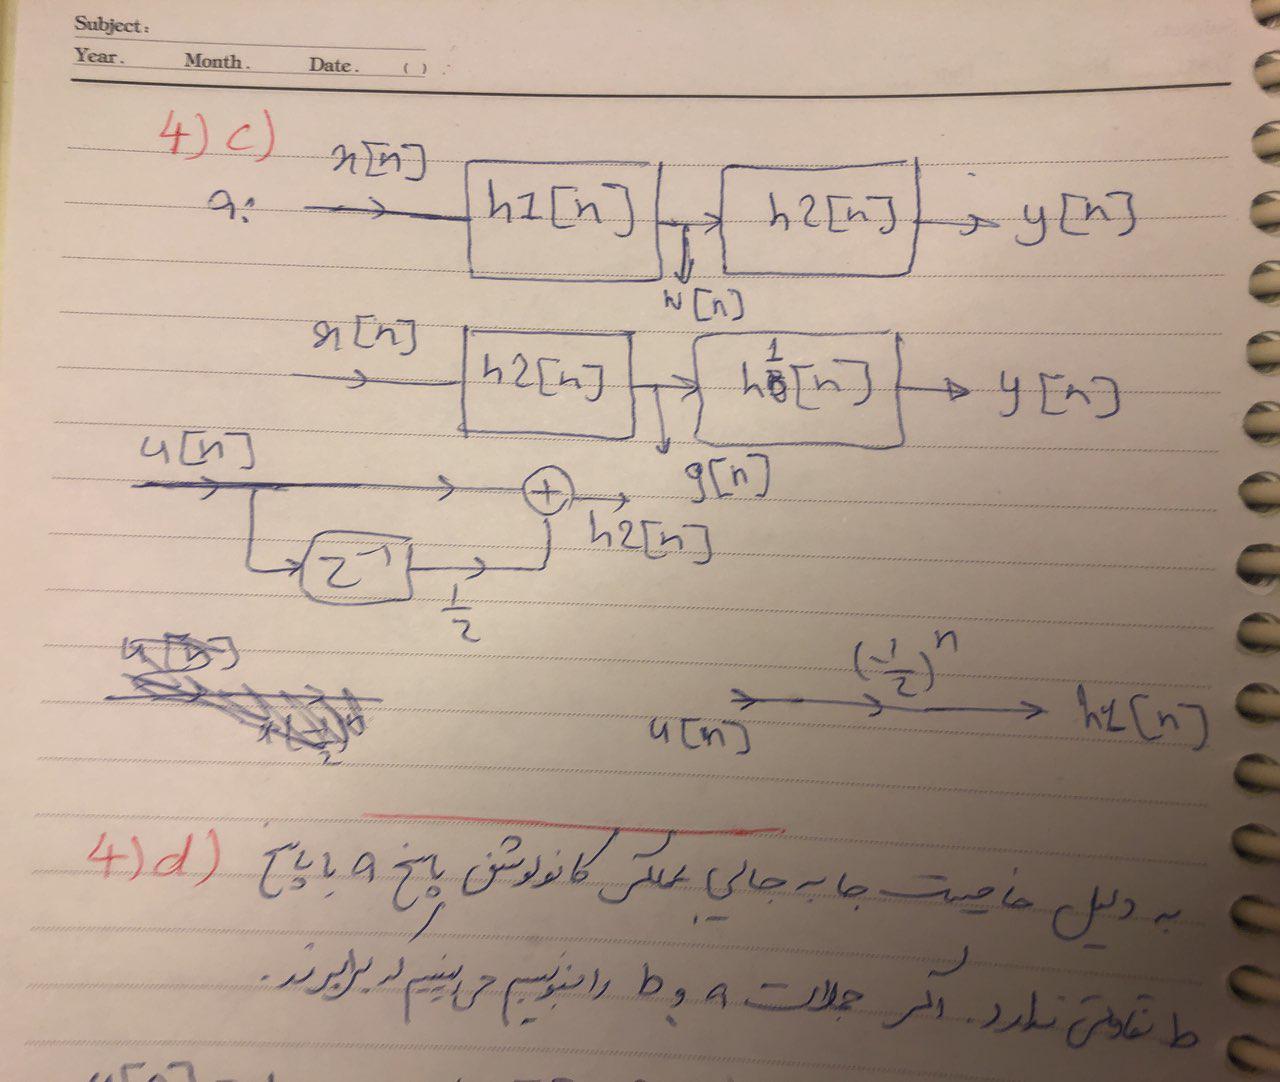 Subject:
Year. Month. Date. ( )
4) c)
a: x[n] h1[n] h2[n] y[n]
w[n]
x[n] h2[n] h1[n] y[n]
g[n]
u[n] + h2[n]
z⁻¹ 1/2
u[n] (-1/2)^n h1[n]
4) d) به دلیل خاصیت جا به جایی عملگر کانولوشن پاسخ a با پاسخ
b تفاوتی ندارد. اگر جملات a و b را بنویسیم می‌بینیم که برابرند.